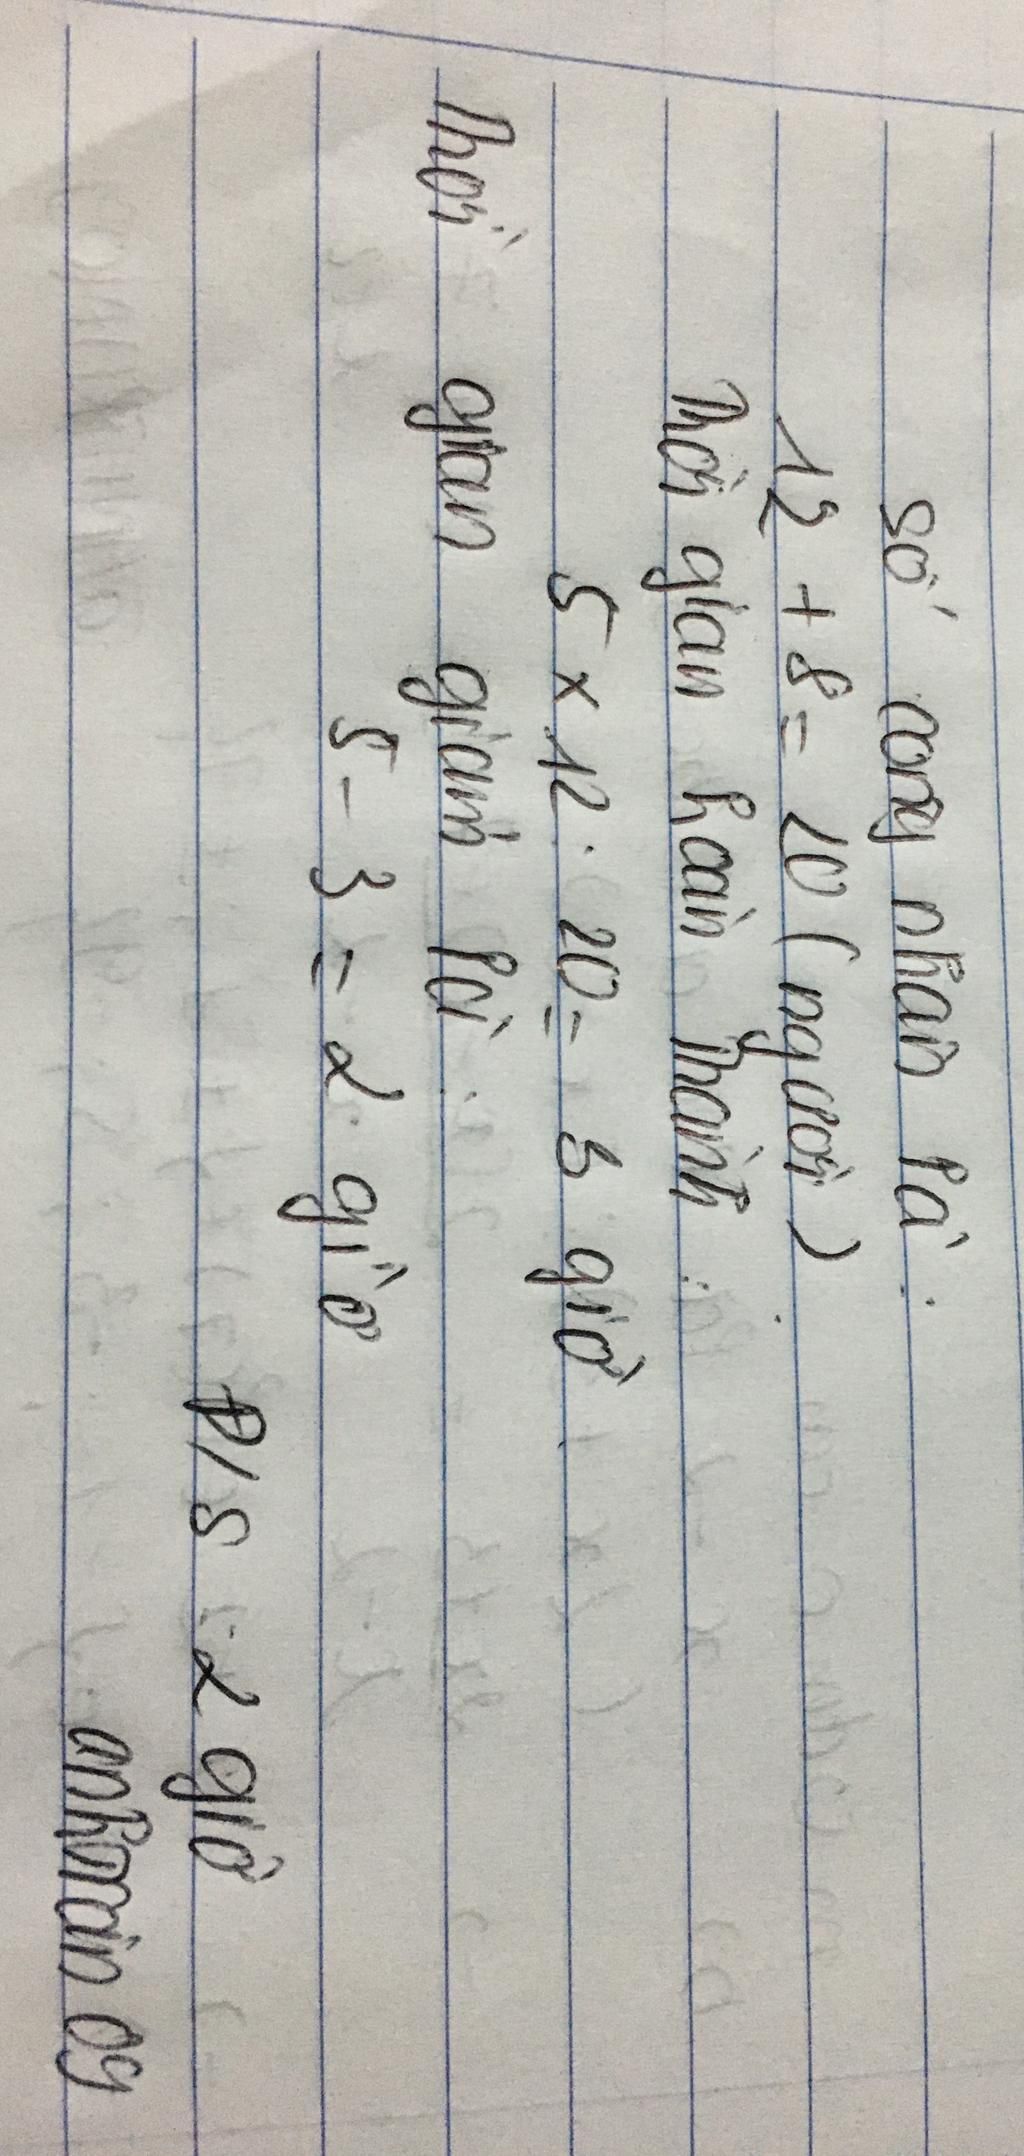 Số công nhân là :
12 + 8 = 20 ( người )
Thời gian hoàn thành :
5 x 12 : 20 = 3 giờ
Thời gian giảm là :
5 - 3 = 2 giờ
Đ/S : 2 giờ
anhmain09